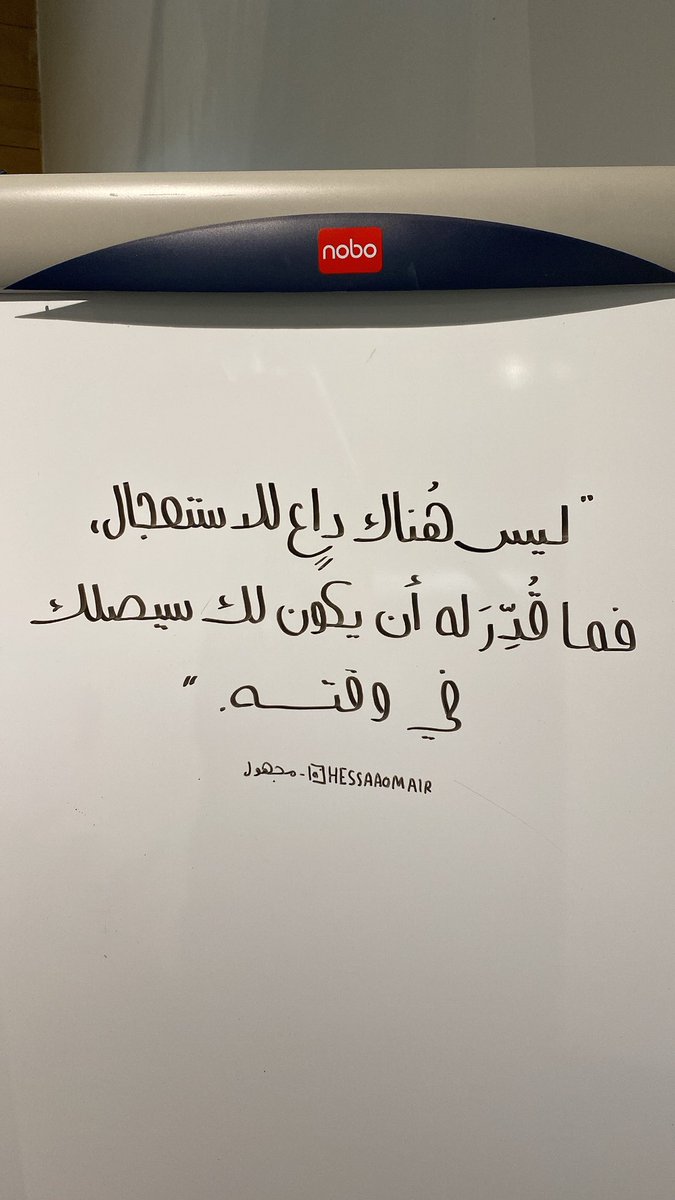 nobo
"ليس هُناك داعٍ للاستعجال،
فما قُدِّرَ له أن يكون لك سيصلك
في وقتـــه."
HESSAAOMAIR - مجهول